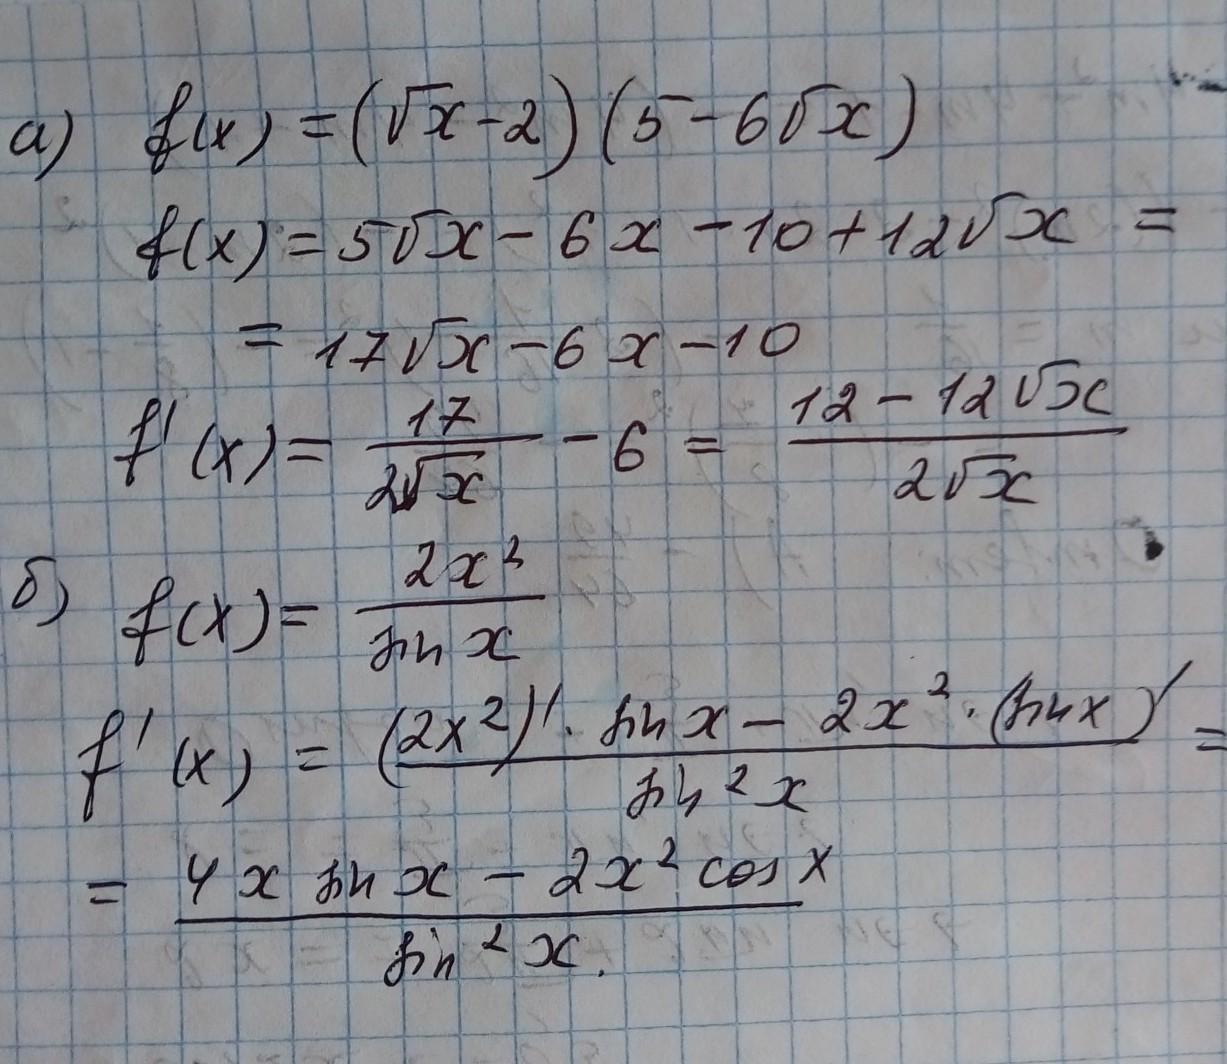 а) f(x) = (√x - 2)(5 - 6√x)
f(x) = 5√x - 6x - 10 + 12√x =
= 17√x - 6x - 10
f'(x) = 17/(2√x) - 6 = (12 - 12√x)/(2√x)
б) f(x) = 2x²/sin x
f'(x) = ((2x²)' · sin x - 2x² · (sin x)')/sin²x =
= (4x sin x - 2x² cos x)/sin²x.